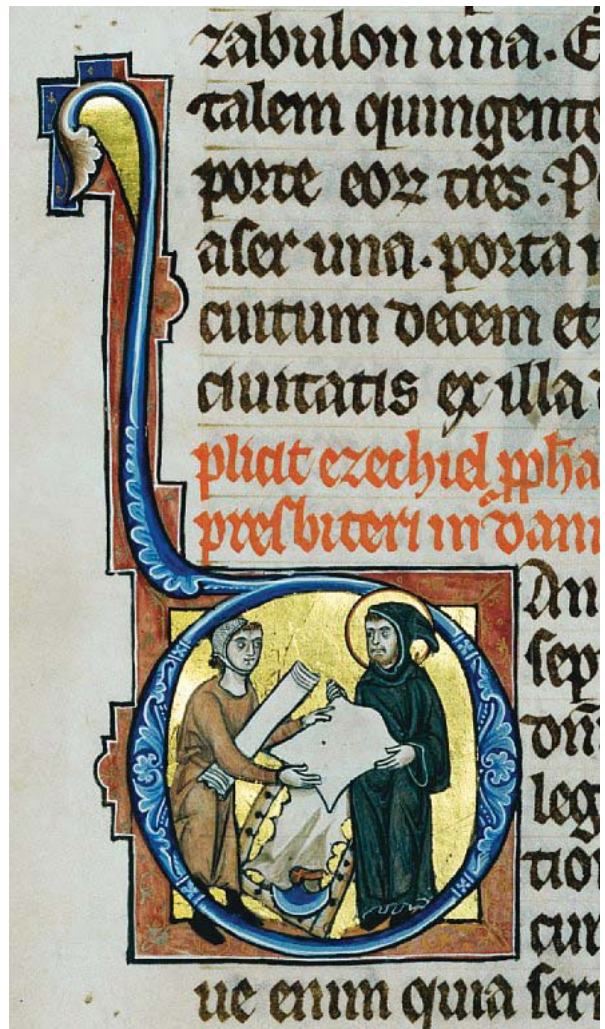 zabulon una. E
talem quingente
porte eoꝝ tres. Pe
aser una. porta n
cuitum decem et
ciuitatis ex illa
plicit ezechiel ppha
presbiteri in dani
An
sep
dn̄
leg
tion
cur
ue enim quia ser